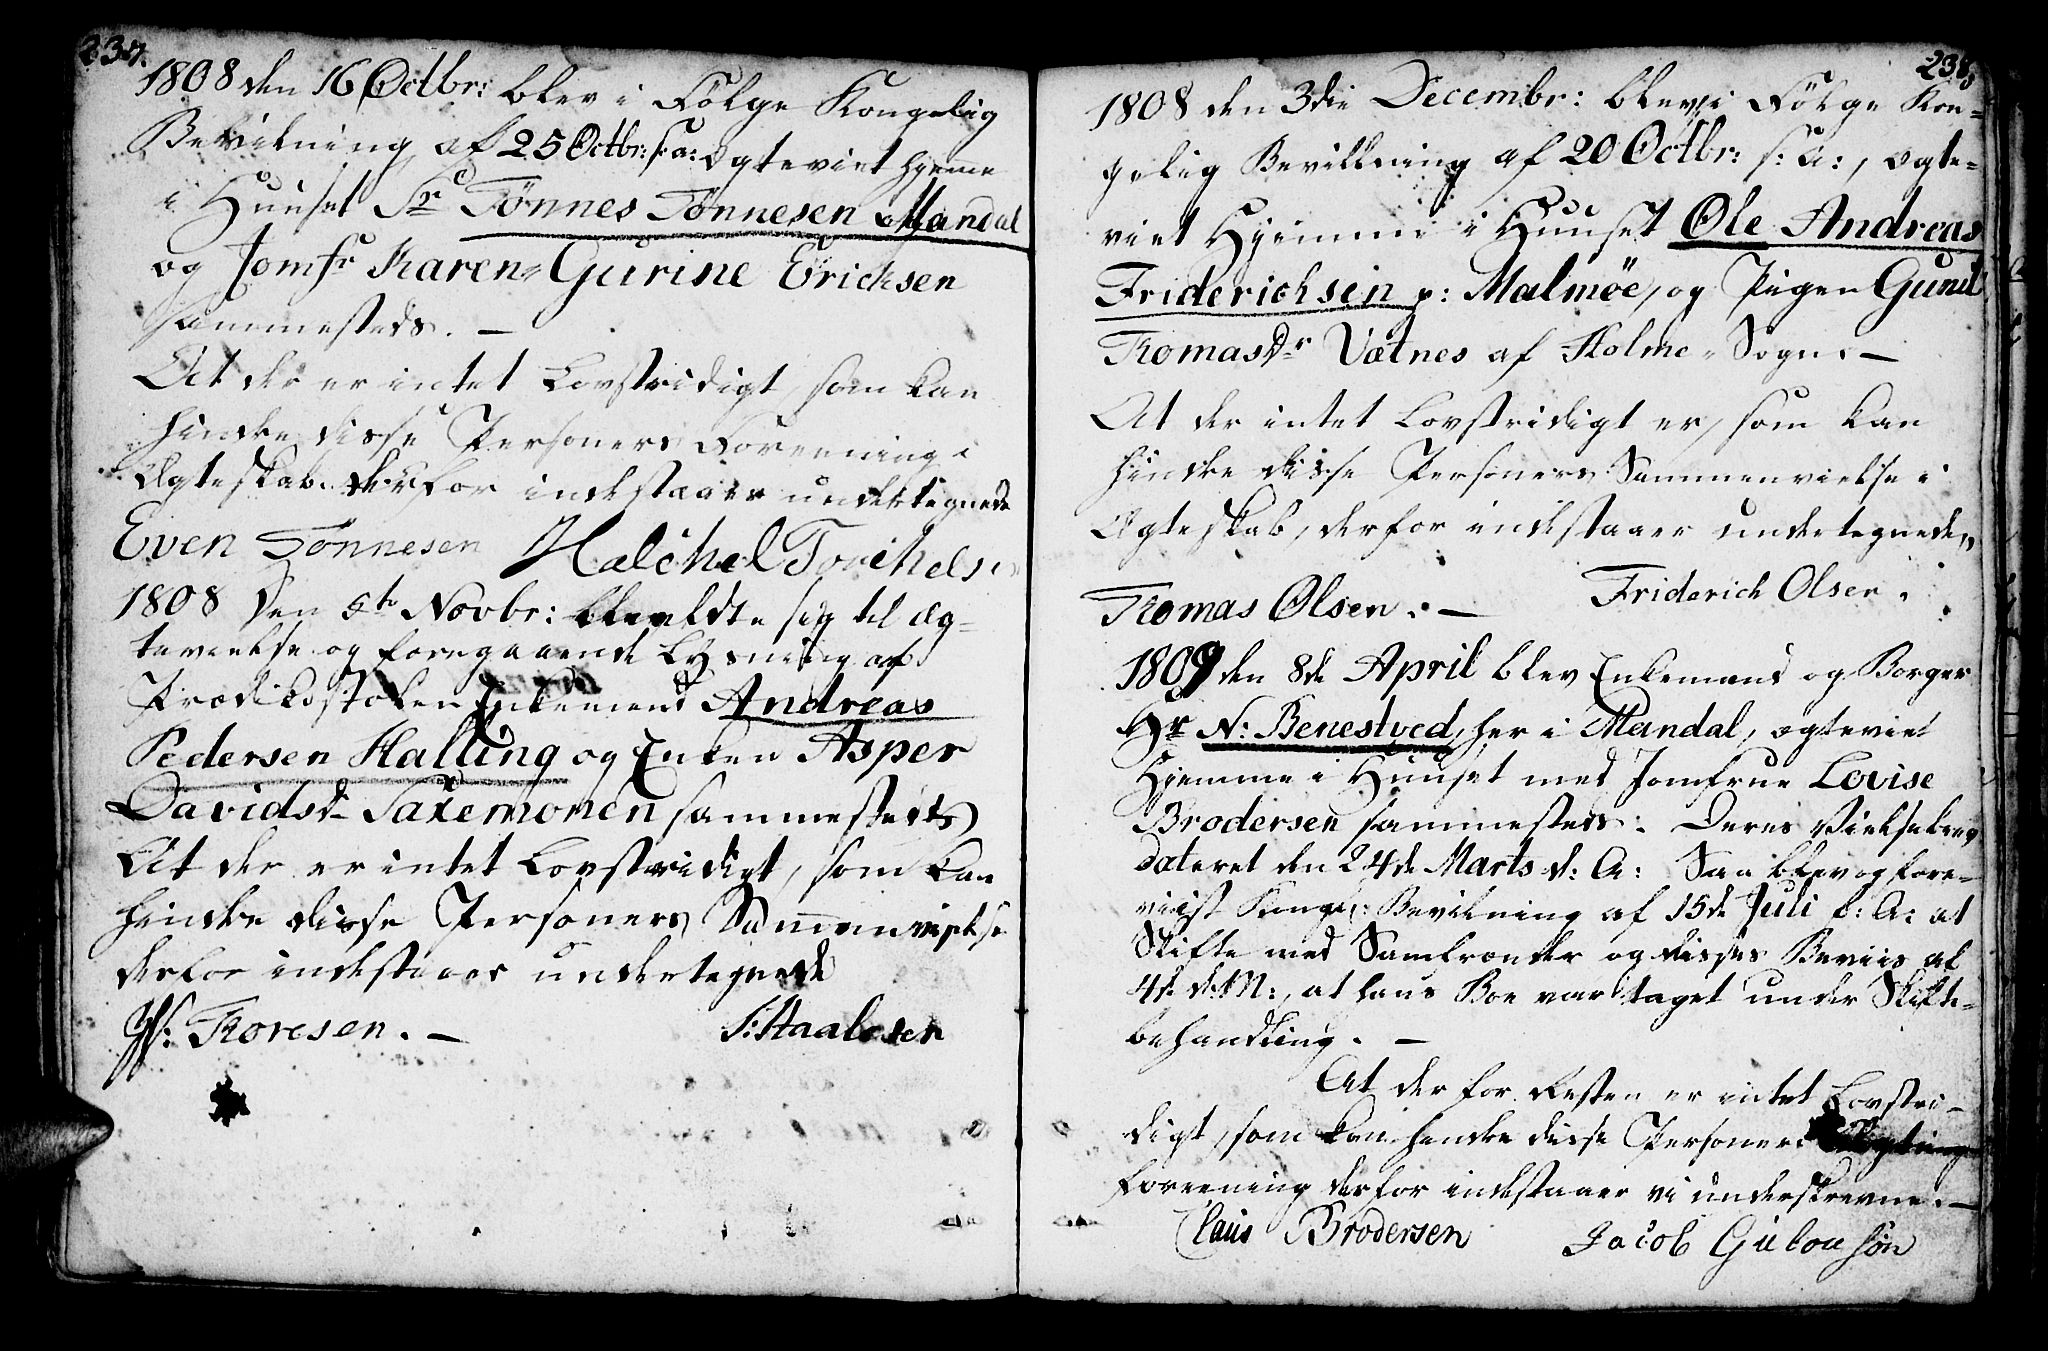 237.
1808 den 16 Octbr: blev i Følge Kongelig
Bevilning af 25 Octbr: f: a: Ægteviet hjemme
i Huuset Sr Tønnes Tønnesen Mandal
og Jomfr Karen Gurine Ericksen
sammesteds. —
At der er intet Lovstridigt, som kan
hindre disse Personers Foreening i
Ægteskab. derfor indestaaer undertegnede
Even Tönnesen Halchel Torchels
1808 den 5te Novbr: meldte sig til Æg-
tevielse og foregaaende Lysning af
Prædikestolen Enkemand Andreas
Pedersen Halling og Enken Asper
Davidsdr Saxemonen sammesteds
At der er intet Lovstridigt, som kan
hindre disse Personers Sammenvielse
derfor indestaaer undertegnede
Thoresen. — S: Haalesen
238
1808 den 3die Decembr: blev i Følge Kon-
gelig Bevillning af 20 Octbr: s: A:, Ægte-
viet Hjemme i Huuset Ole Andreas
Friderichsen p: Malmöe, og Pigen Gunil
Thomasdr Vatnes af Holme Sogn. —
At der intet Lovstridigt er, som kan
hindre disse Personers Sammenvielse i
Ægteskab, derfor indestaaer undertegnede,
Thomas Olsen. — Friderich Olsen.
1809 den 8de April blev Enkemand og Borger
Hr N: Benestved, her i Mandal, ægteviet
Hjemme i Huuset med Jomfrue Lovise
Brodersen sammesteds: Deres Vielsebrev
dateret den 24de Marts d: A: Saa blev og fore-
viist Kongel: Bevilning af 15de Juli f: A: at
Skifte med Samfrender og disses Beviis af
4de d: M:, at hans Boe var taget under Skifte-
behandling. —
At der for Resten er intet Lovstri-
digt, som kan hindre disse Personers
Foreening derfor indestaaer vi underskrevne. —
Claus Brodersen Jacob